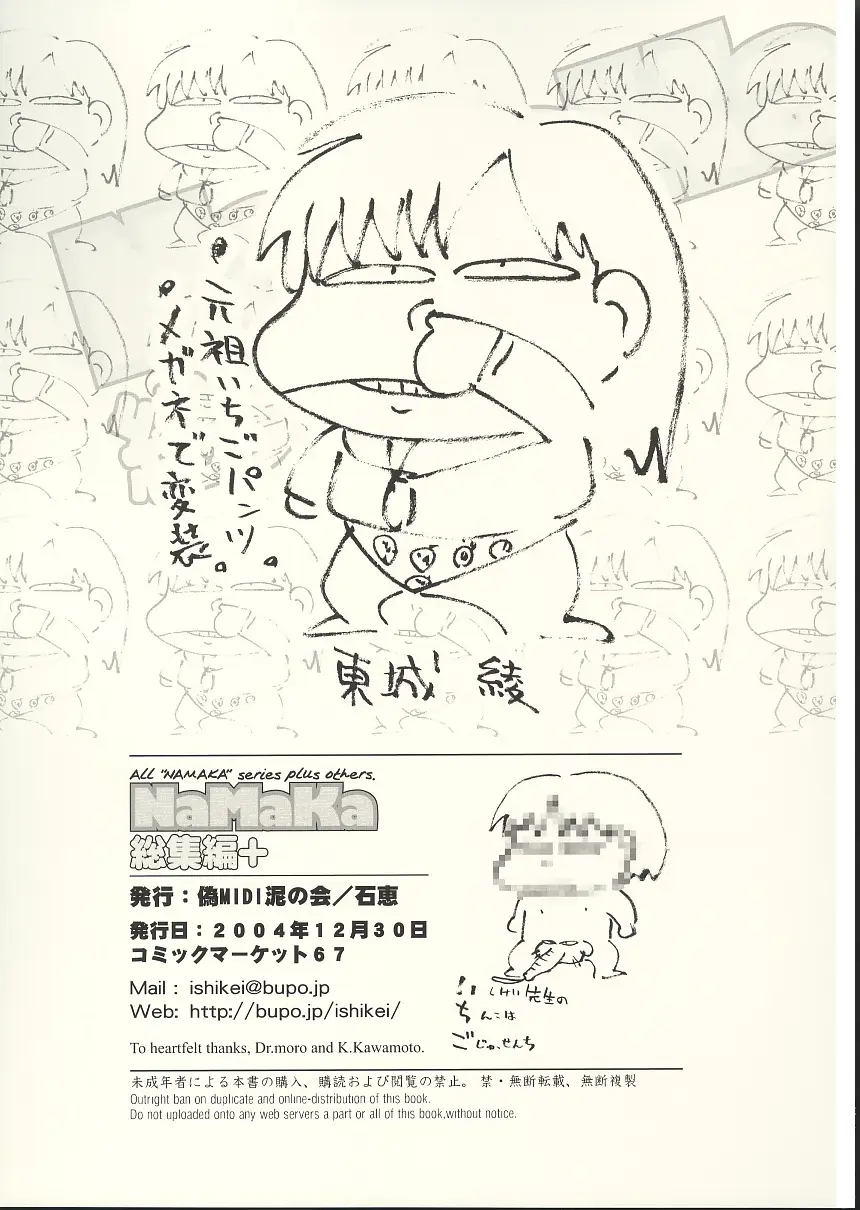 元祖いちごパンツ。
メガネで変装。
東城 綾
ALL "NAMAKA" series plus others.
NaMaKa
総集編+
発行：偽MIDI泥の会／石恵
発行日：２００４年１２月３０日
コミックマーケット６７
Mail : ishikei@bupo.jp
Web: http://bupo.jp/ishikei/
To heartfelt thanks, Dr.moro and K.Kawamoto.
いしけい先生の
ちんこは
ごじゅっせんち
未成年者による本書の購入、購読および閲覧の禁止。 禁・無断転載、無断複製
Outright ban on duplicate and online-distribution of this book.
Do not uploaded onto any web servers a part or all of this book,without notice.